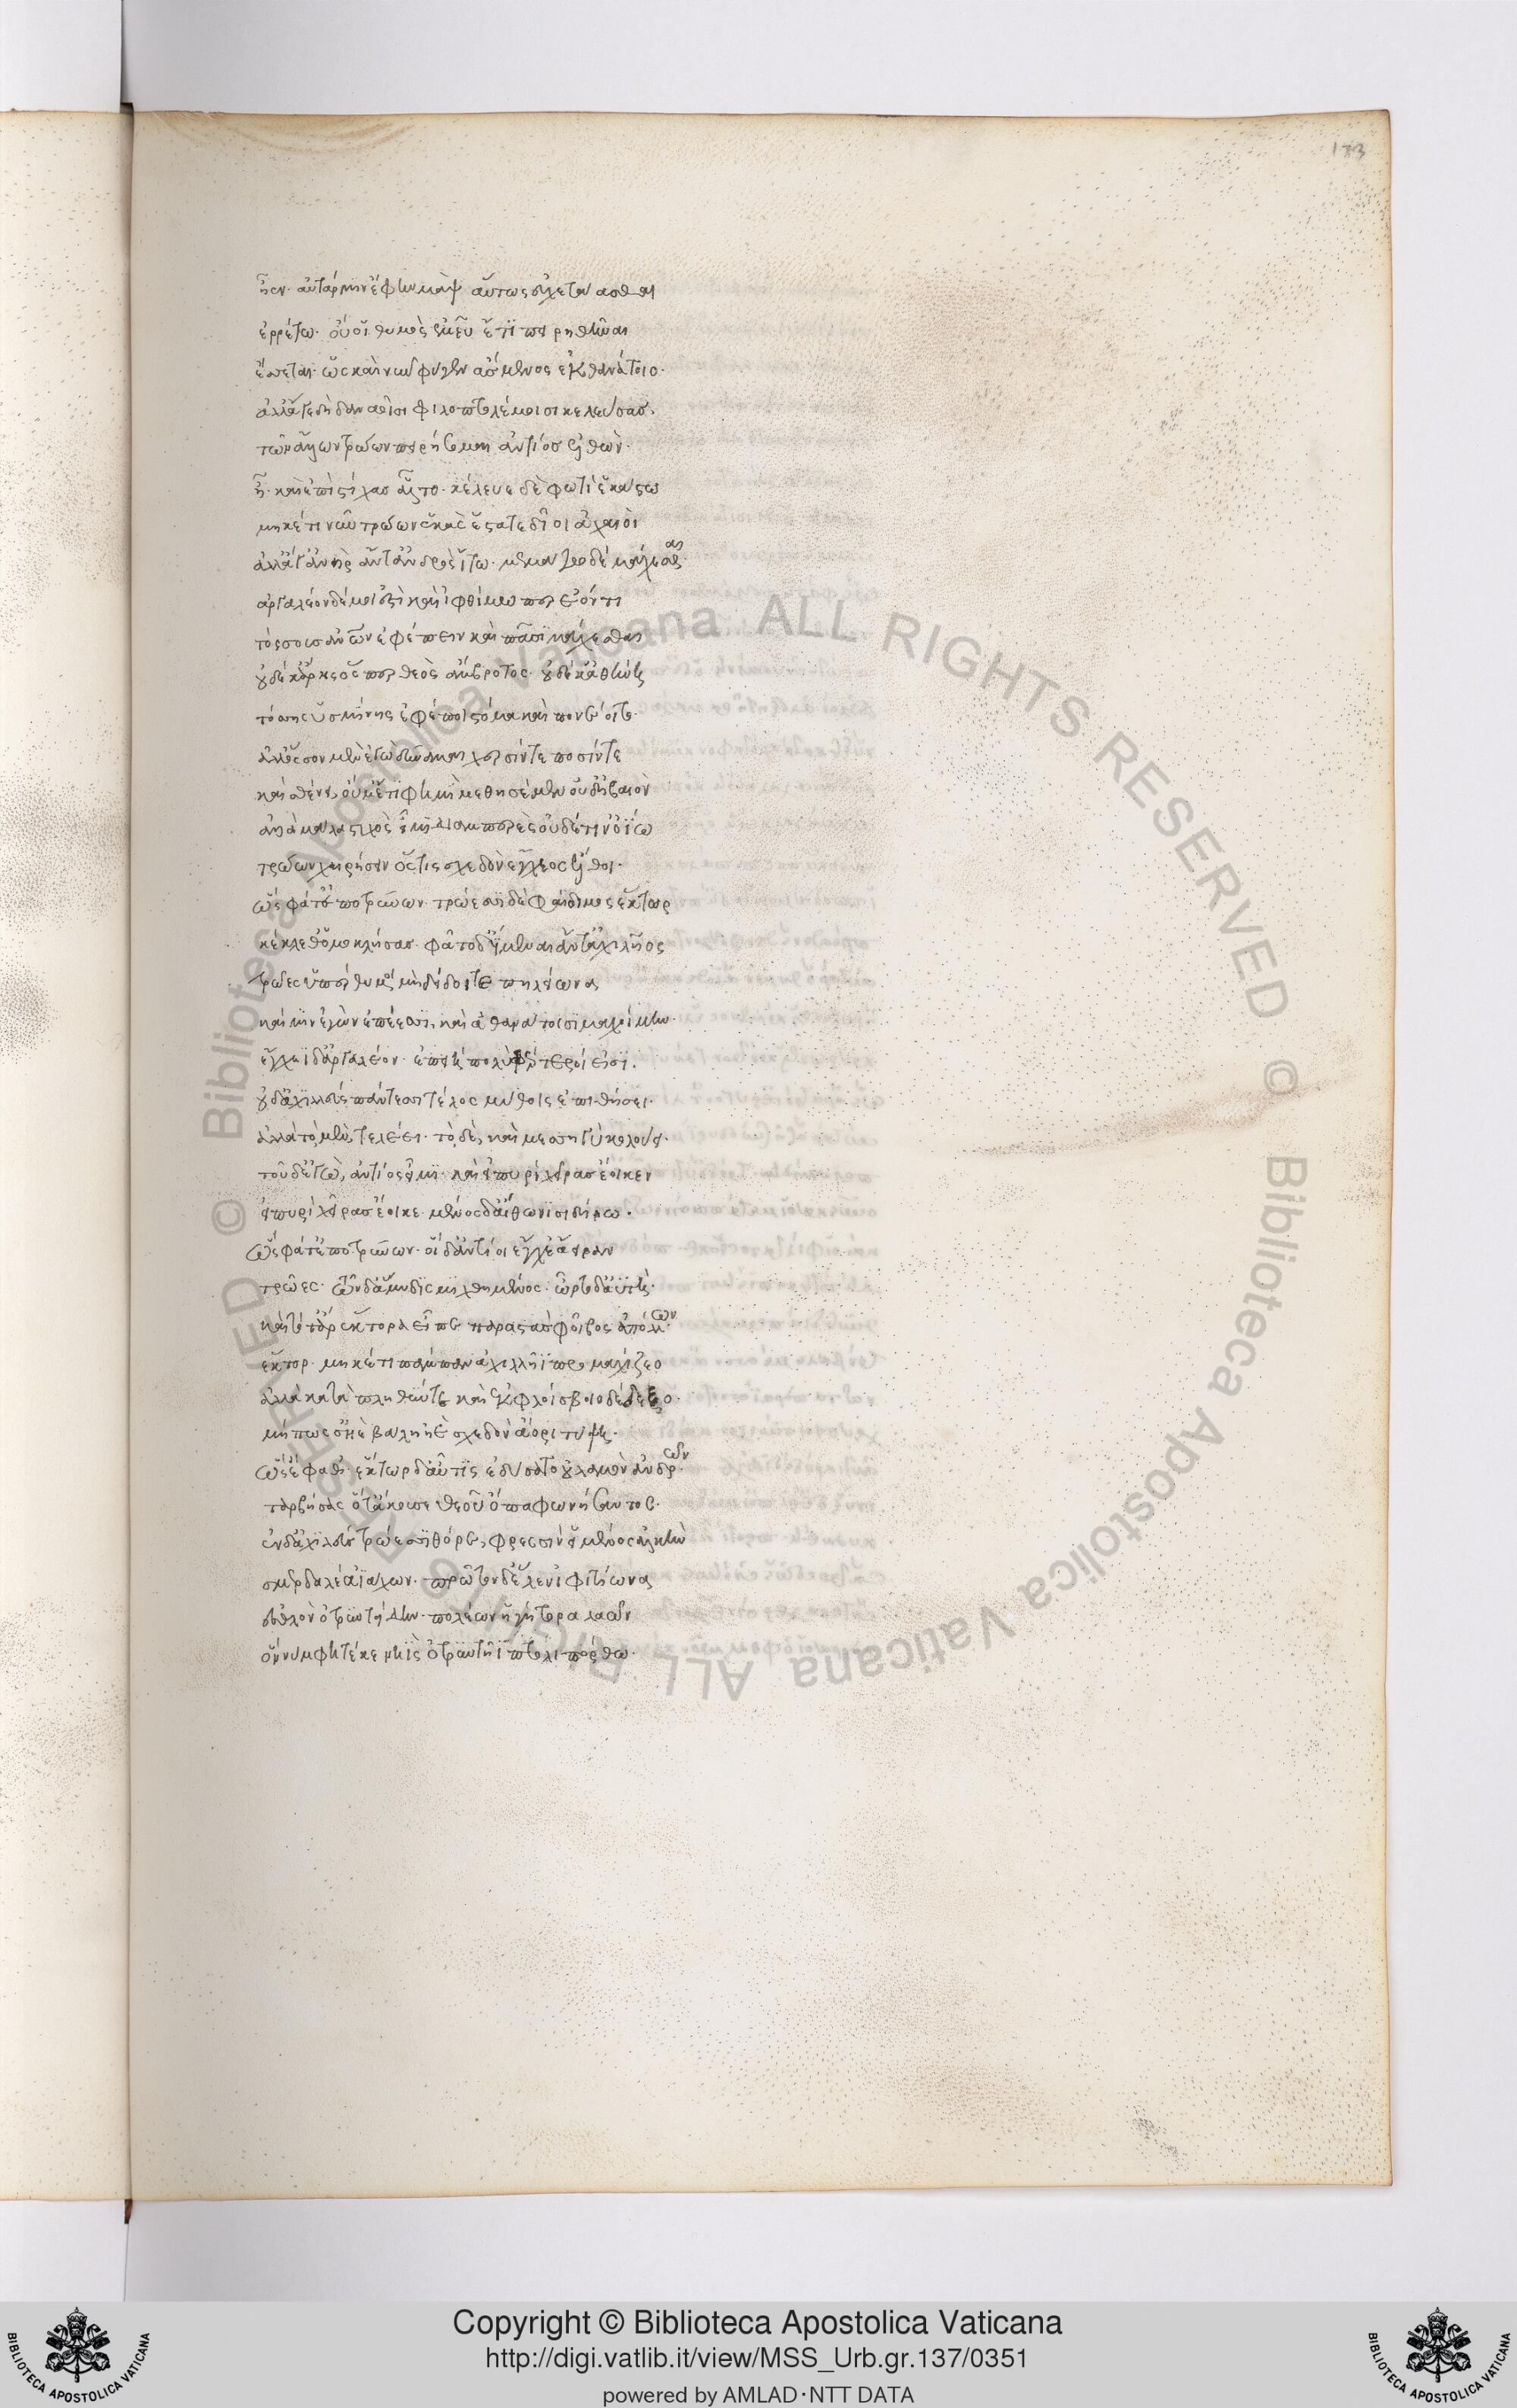 173
ἦεν· αὐτάρ μιν ἔφην μὰψ αὔτως εὐχετάασθαι
ἐρρέτω· οὔ οἱ θυμὸς ἐμεῦ ἔτι πειρηθῆναι
ἔσσεται· ὃς καὶ νῦν φύγεν ἄσμενος ἐκ θανάτοιο·
ἀλλ' ἄγε δὴ δαναοῖσι φιλοπτολέμοισι κελεύσας·
τῶν ἄλλων τρώων πειρήσομαι ἀντίος ἐλθών·
ἦ· καὶ ἐπὶ στίχας ἆλτο· κέλευε δὲ φωτὶ ἑκάστω
μηκέτι νῦν τρώων ἑκὰς ἕστατε δῖοι ἀχαιοὶ
ἀλλ' ἄγ' ἀνὴρ ἄντ' ἀνδρὸς ἴτω· μεμάτω δὲ μάχεσθαι·
ἀργαλέον δέ μοί ἐστὶ καὶ ἰφθίμω περ ἐόντι
τόσσους δ' ἀνθρώπους ἐφέπειν καὶ πᾶσι μάχεσθαι
οὐδέ κ' ἄρης ὅς περ θεὸς ἄμβροτος· οὐδέ κ' ἀθήνη
τόσσης ὑσμίνης ἐφέποι στόμα καὶ πονέοιτο·
ἀλλ' ὅσσον μὲν ἐγὼ δύναμαι χερσίν τε ποσίν τε
καὶ σθένει, οὔ μ' ἔτι φημὶ μεθησέμεν οὐδ' ἠβαιὸν
ἀλλὰ μάλα στιχὸς εἶμι διαμπερὲς οὐδέ τιν' οἴω
τρώων χαιρήσειν ὅς τις σχεδὸν ἔγχεος ἔλθοι·
ὣς φάτ' ἐποτρύνων· τρώεσσι δὲ φαίδιμος ἕκτωρ
κέκλεθ' ὁμοκλήσας· φάτο δ' ἴμεναι ἄντ' ἀχιλῆος
τρῶες ὑπέρθυμοι μὴ δείδιτε πηλείωνα
καί κεν ἐγὼν ἐπέεσσι, καὶ ἀθανάτοισι μαχοίμην·
ἔγχεϊ δ' ἀργαλέον· ἐπειὴ πολὺ φέρτεροί εἰσι.
οὐδ' ἀχιλεὺς πάντεσσι τέλος μύθοις ἐπιθήσει·
ἀλλὰ τὸ μὲν, τελέει· τὸ δὲ, καὶ μεσσηγὺ κολούει·
τοῦ δ' ἐγὼ, ἀντίος εἶμι· καὶ εἰ πυρὶ χεῖρας ἔοικεν
εἰ πυρὶ χεῖρας ἔοικε· μένος δ' αἴθωνι σιδήρω·
ὣς φάτ' ἐποτρύνων· οἱ δ' ἀντίοι ἔγχε' ἄειραν
τρῶες· τῶν δ' ἄμυδις μίχθη μένος· ὦρτο δ' ἀϋτή·
καὶ τότ' ἄρ' ἕκτορα εἶπε παραστὰς φοῖβος ἀπόλλων
ἕκτορ· μηκέτι πάμπαν ἀχιλλῆϊ προμάχιζεο
ἀλλὰ κατὰ πληθύν τε καὶ ἐκ φλοίσβοιο δέδεξο·
μή πως σ' ἠὲ βάλῃ ἠὲ σχεδὸν ἄορι τύψῃ·
ὣς ἔφαθ'· ἕκτωρ δ' αὖτις ἐδύσατο οὐλαμὸν ἀνδρῶν
ταρβήσας ὅτ' ἄκουσε θεοῦ ὄπα φωνήσαντος·
ἐν δ' ἀχιλεὺς τρώεσσι θόρε, φρεσὶν εἱμένος ἀλκὴν
σμερδαλέα ἰάχων· πρῶτον δ' ἕλεν ἰφιτίωνα
ἐσθλὸν ὀτρυντείδην· πολέων ἡγήτορα λαῶν
ὃν νύμφη τέκε νηῒς ὀτρυντῆϊ πτολιπόρθω·
Copyright © Biblioteca Apostolica Vaticana
http://digi.vatlib.it/view/MSS_Urb.gr.137/0351
powered by AMLAD·NTT DATA